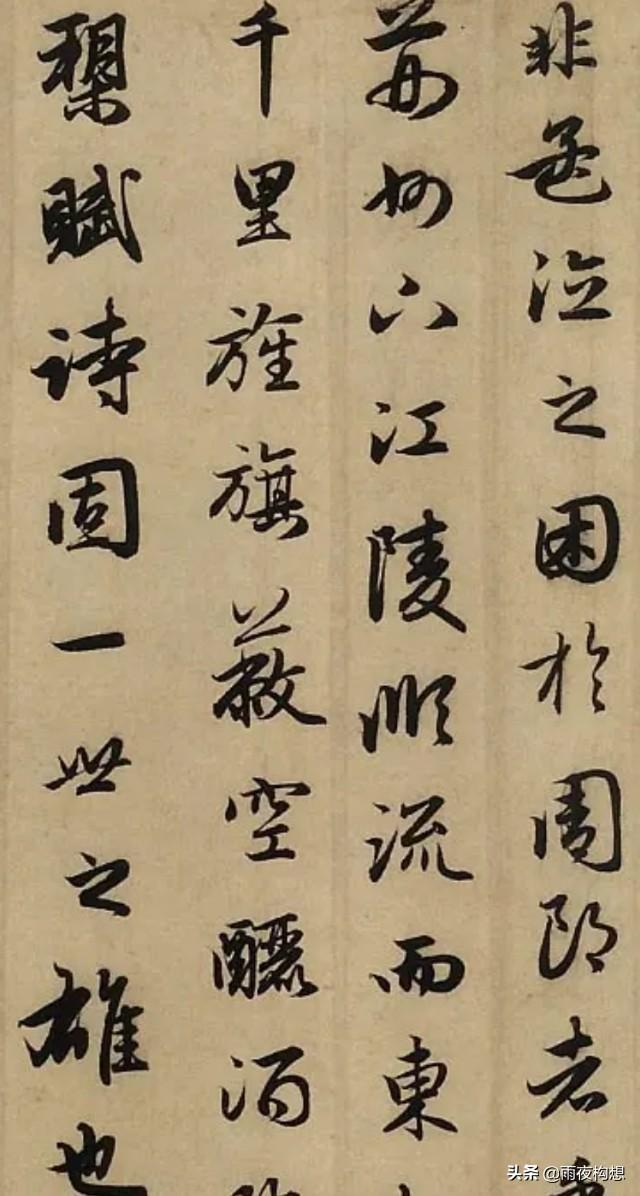 非孟德之困於周郎者
荊州下江陵順流而東
千里旌旗蔽空釃酒
槊賦詩固一世之雄也
头条 @雨夜构想